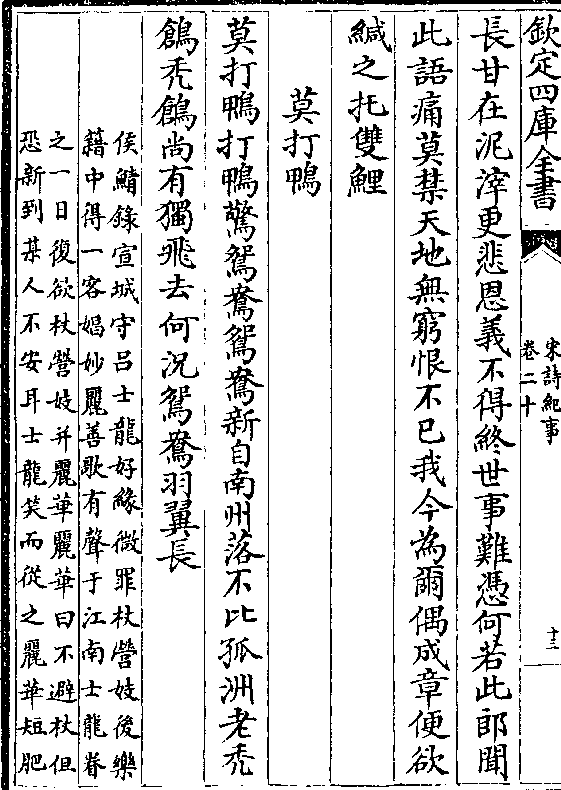 欽定四庫全書
宋詩紀事
卷二十
十三
長甘在泥滓更悲恩義不得終世事難憑何若此郎聞
此語痛莫禁天地無窮恨不已我今為爾偶成章便欲
緘之托雙鯉
莫打鴨
莫打鴨打鴨驚鴛鴦鴛鴦新自南州落不比孤洲老禿
鶬禿鶬尚有獨飛去何況鴛鴦羽翼長
侯鯖錄宣城守呂士龍好緣微罪杖營妓後樂
籍中得一客娼妙麗善歌有聲于江南士龍眷
之一日復欲杖營妓并麗華麗華曰不避杖但
恐新到某人不安耳士龍笑而從之麗華短肥